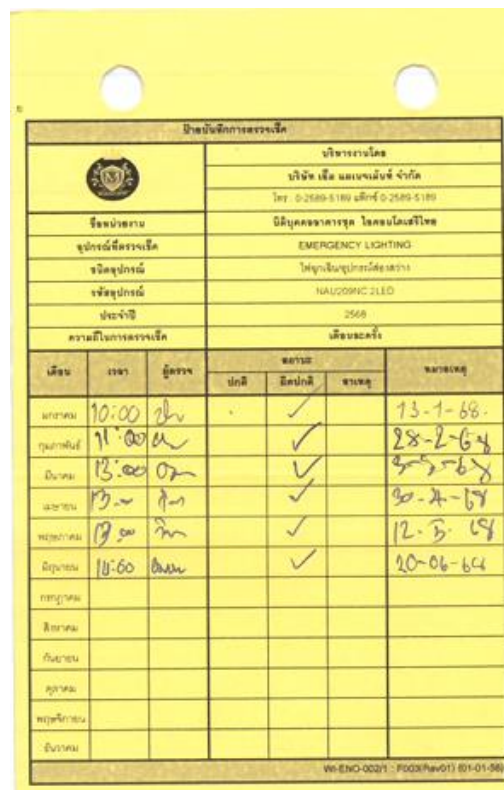 ป้ายบันทึกการตรวจเช็ค
บริหารงานโดย
บริษัท เอ็ม แมเนจเม้นท์ จำกัด
โทร. 0-2589-5189 แฟ็กซ์ 0-2589-5189
ชื่อหน่วยงาน นิติบุคคลอาคารชุด ไอคอนโดเสรีไทย
อุปกรณ์ที่ตรวจเช็ค EMERGENCY LIGHTING
ชนิดอุปกรณ์ ไฟฉุกเฉิน/อุปกรณ์ส่องสว่าง
รหัสอุปกรณ์ NAU209NC 2LED
ประจำปี 2568
ความถี่ในการตรวจเช็ค เดือนละครั้ง
เดือน เวลา ผู้ตรวจ สถานะ หมายเหตุ
ปกติ ผิดปกติ สาเหตุ
มกราคม 10:00 ✓ 13-1-68.
กุมภาพันธ์ 11:00 ✓ 28-2-68
มีนาคม 13:00 ✓
เมษายน ✓ 30-4-68
พฤษภาคม 13.00 ✓ 12. 5. 68
มิถุนายน ✓
กรกฎาคม
สิงหาคม
กันยายน
ตุลาคม
พฤศจิกายน
ธันวาคม
WI-ENO-002/1 : F003(Rev01) (01-01-56)